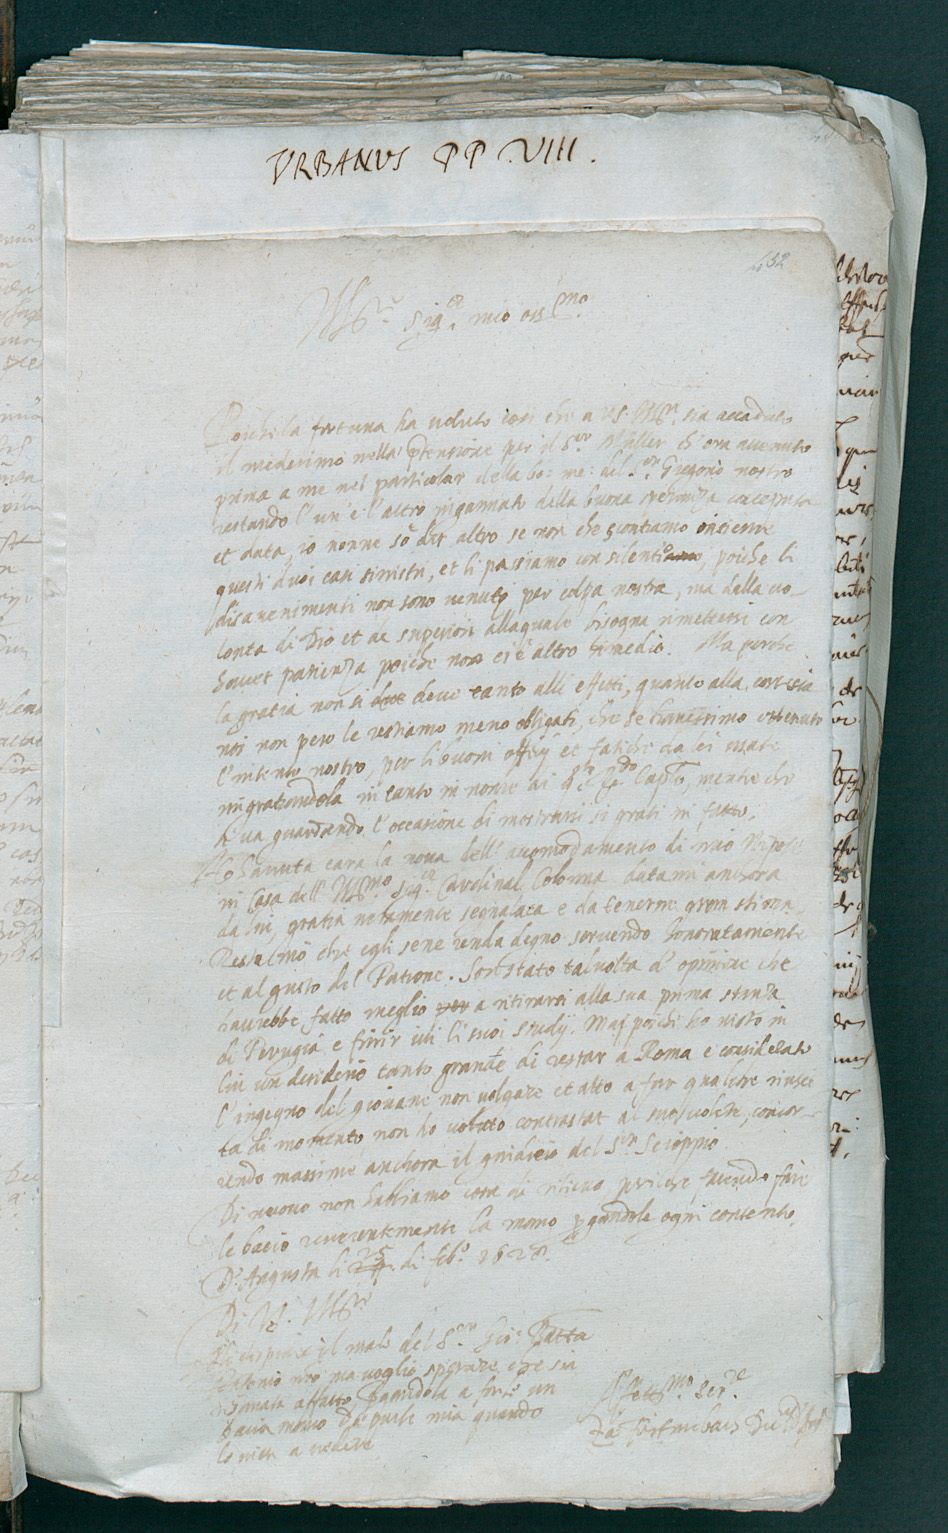 VRBANUS PP. VIII.
432
Ill.re Sig.or mio oss.mo
Poiche la fortuna ha voluto cosi che a VS. Ill.re sia accaduto
il medesimo nella p̄tensione per il S.or Müller ch'era avvenuto
prima a me nel particolar della bo: me: del S.or Gregorio nostro
restando l'un e l'altro ingannati della buona speranza concepusa
et data, io non ne sō dir altro se non che scontiamo insieme
questi duoi casi sinistri, et li passiamo con silentio, poiche li
disavenimenti non sono venuti per colpa nostra, ma dalla vo-
lonta di Dio et de superiori alla quale bisogna rimettersi con
haver patienza poiche non ci è altro rimedio. Ma perche
la gratia non si deve tanto alli effetti, quanto alla cortesia
noi non pero le restiamo meno obligati, che se havessimo ottenuto
l'intento nostro, per li buoni offitij et fatiche da lei usate
ringratiandola in tanto in nome di mentre che
si va guardando l'occasione di mostrarsi si grati in fatto.
Ho havuta cara la nova dell' accomodamento di mio Nipote
in Casa dell' Ill.mo Sig.or Cardinal Colonna datami anchora
da lui, gratia veramente segnalata e da tenerne gran stima
Resta mò che egli se ne renda degno servendo honoratamente
et al gusto del Patrone. Son stato talvolta d'opinione che
haverebbe fatto meglio a ritirarsi alla sua prima stanza
di Perugia e finir ivi li suoi studij. Mà poiche ho visto in
lui un desiderio tanto grande di restar a Roma e considerato
l'ingegno del giovane non volgare et atto a far qualche riusci
ta di momento non ho voluto contrastar al suo volere, concor-
rendo massime anchora il giuditio del S.or Scioppio.
Di nuovo non habbiamo cose di rilievo perilche facendo fine
le bacio reverentemente la mano p̄gandole ogni contento.
D'Augusta li 25 di feb.o 1628.
Di VS. Ill.re
Mi dispiace il male del S.or Gio: Batta
Antonio mio ma voglio sperare che sia
risanato affatto, pgandola a farle un
bacia mano da parte mia quando
lo vien a vedere
Affett.mo Ser.re